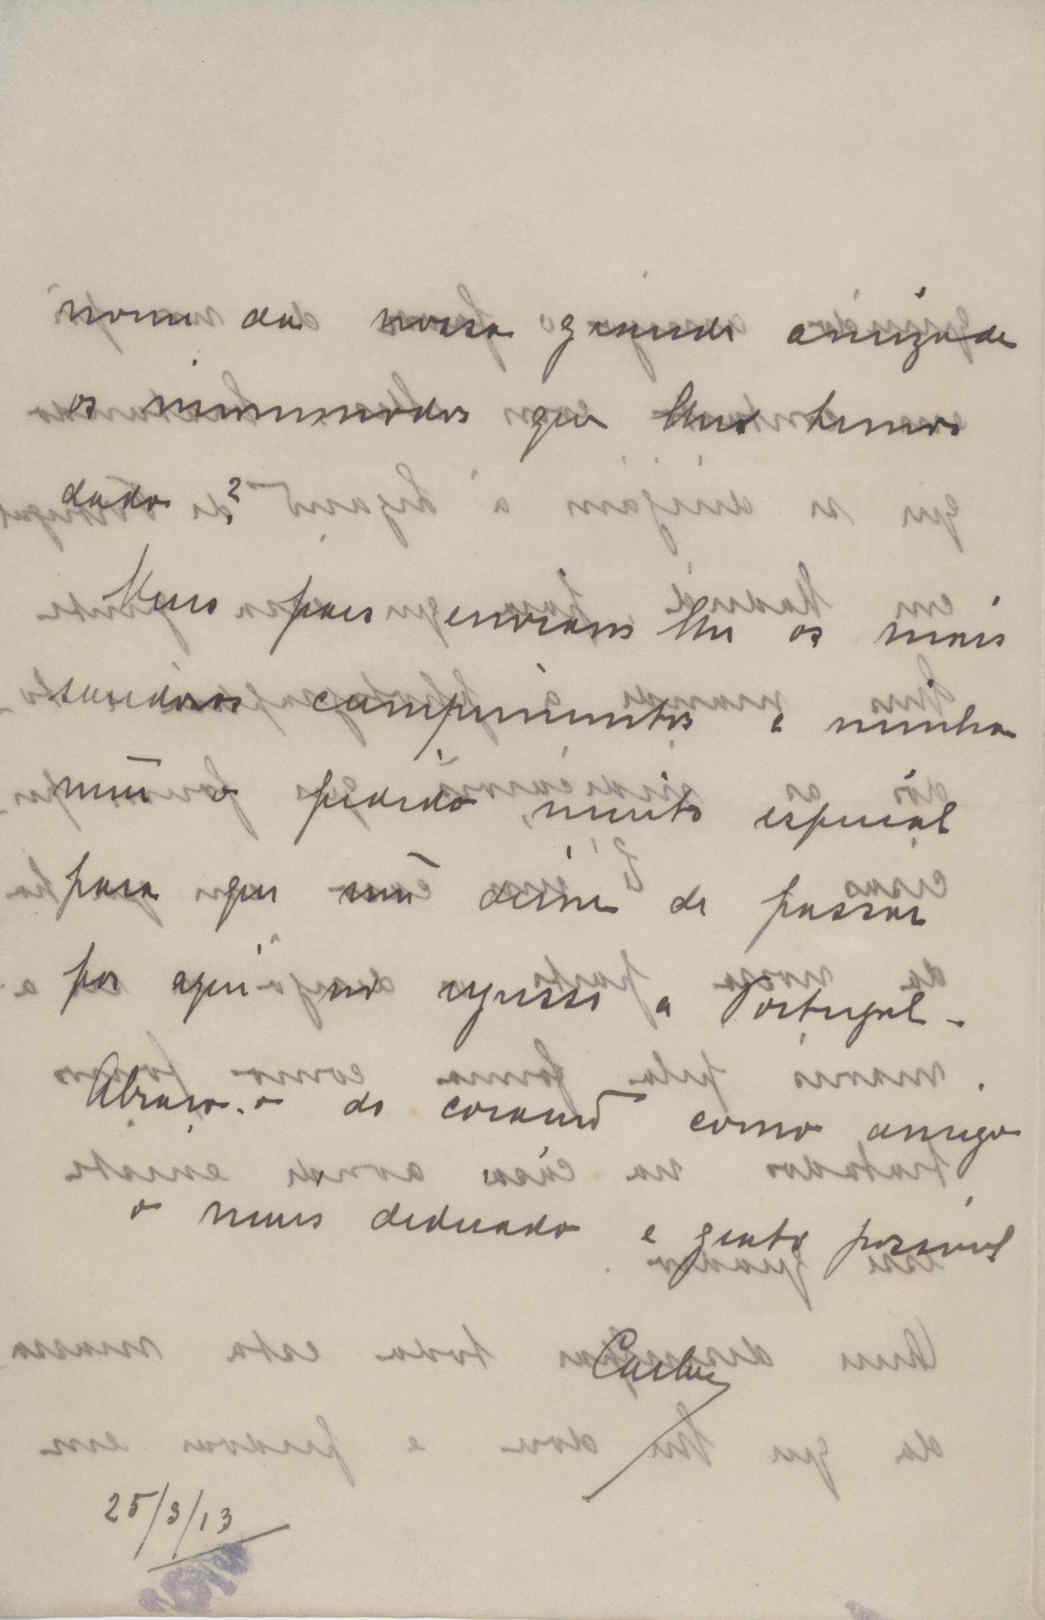 nome da nossa grande amizade
os incommodos que lhes temos
dado?
Meus paes enviam lhe os mais
cumprimentos e minha
mãe o pedido, muito especial
para que não deixe de passar
por aqui no regresso a Portugal.
Abraça-o do coração como amigo
o mais dedicado e grato possivel
Carlos
25/3/13